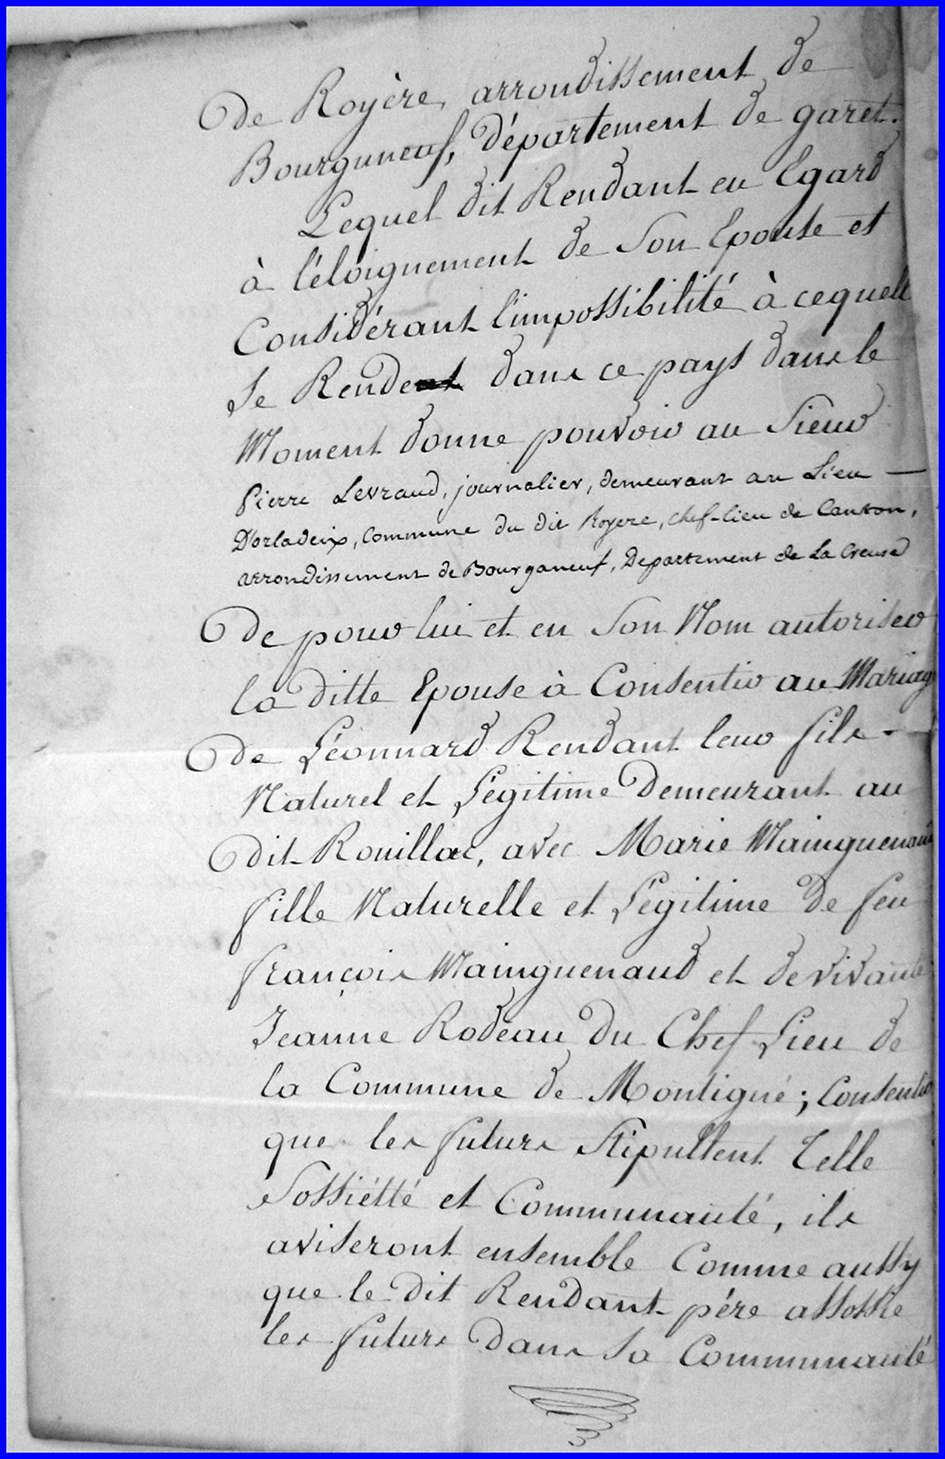 de Royère, arrondissement de
Bourguneuf, Département de garet.
Lequel dit Rendant eu Egard
à l'éloignement de Son Epouse et
Considérant l'impossibilité à cequell
Se Rende dans ce pays dans le
Moment donne pouvoir au Sieur
Pierre Levraud, journalier, demeurant au Lieu —
D'orladeix, Commune du dit Royere, chef-lieu de Canton,
arrondissement de Bourganeuf, Departement de La Creuse
De pour lui et en Son Nom autoriser
la ditte Epouse à Consentir au Mariag
de Léonnard Rendant leur fils -
Naturel et Légitime Demeurant au
dit Rouillac, avec Marie Mainguenaud
fille Naturelle et Légitime de feu
françois Mainguenaud et de vivante
Jeanne Rodeau du Chef Lieu de
la Commune de Montigné ; Consentir
que les futurs Stipullent telle
Sossiétté et Communauté, ils
aviseront ensemble Comme aussy
que le dit Rendant père assossie
les futurs dans Sa Communauté